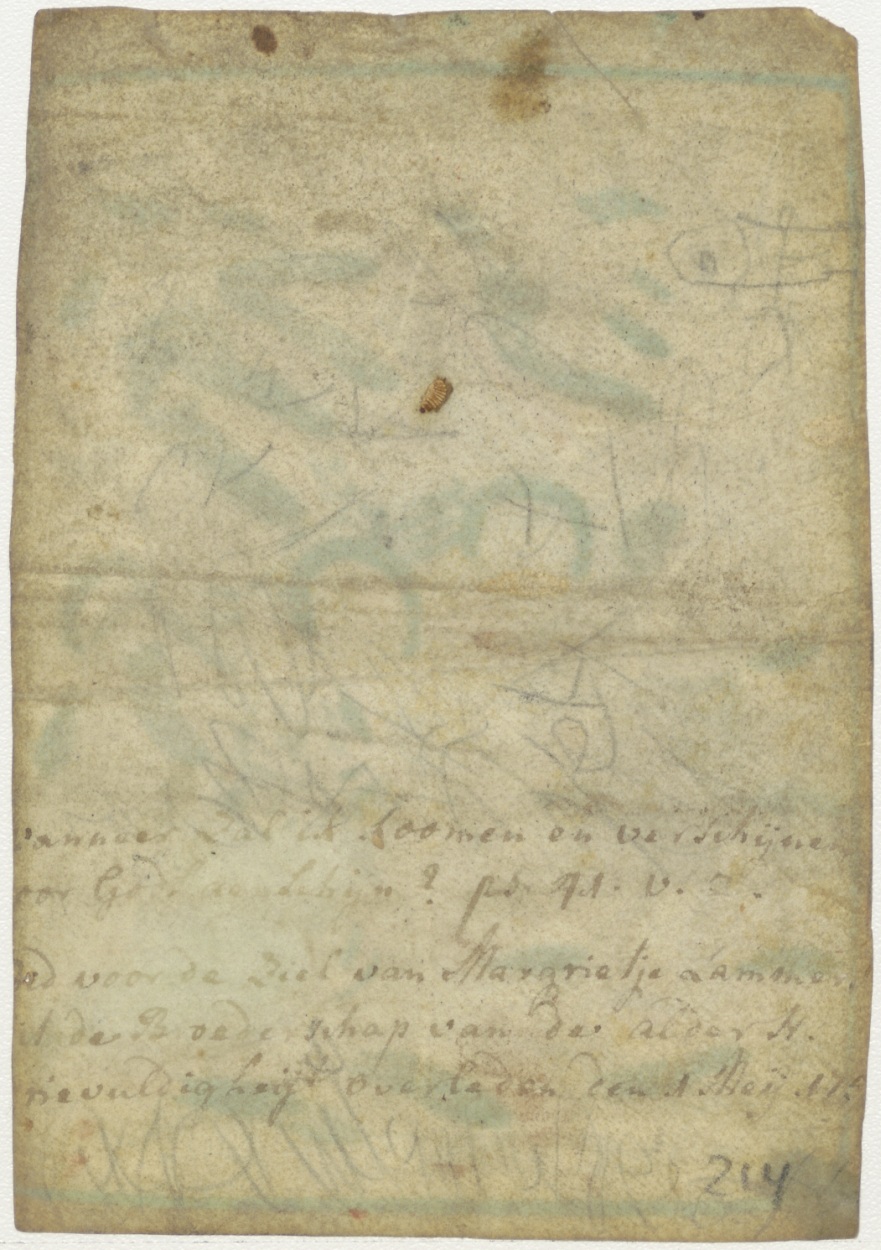 anneer Zal ik koomen en verschijnen
oor God aenschijn? ps. 41. v.
voor de Ziel van Margrietje Lammer
it de Broederschap van de alder H.
rievuldigheijt overleden den 1 Meij 17
214